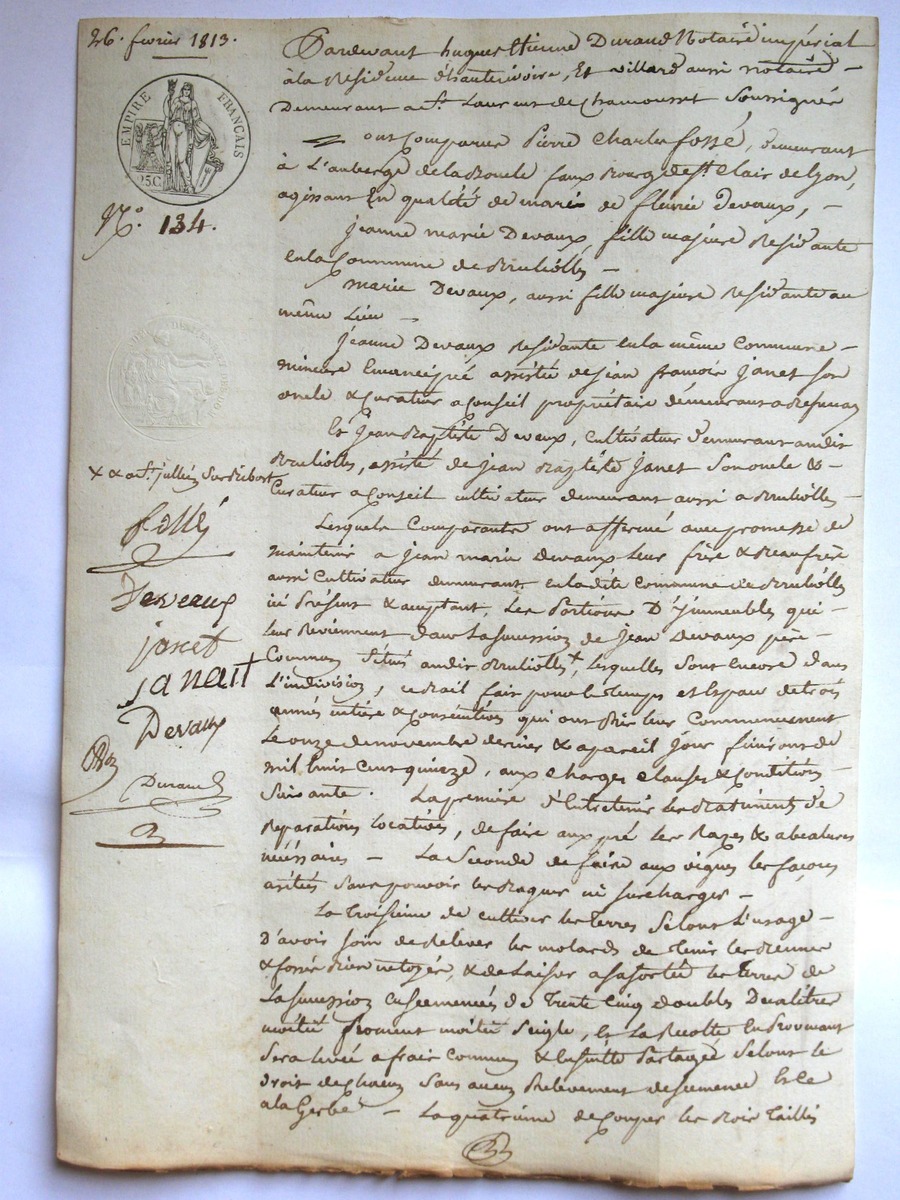 26. fevrier 1813.
EMPIRE FRANÇAIS
25C.
N.º 134.
Pardevant hugues Etienne Durand Notaire impérial
à la Residence d'hauterivoire, Et villard aussi notaire
Demeurant a St. Laurent de Chamousset Soussignés
ont Comparus Pierre Charles fossé, demeurant
à L'auberge de la Boucle faux Bourg de St. Clair de Lyon,
agissant En qualité de maris de fleurie Devaux,
Jeanne marie Devaux, fille majeure Residante
en la Commune de Brullioles
marie Devaux, aussi fille majeure Residante au
même Lieu
Jeanne Devaux residante en la même Commune
mineure Emancipée assistée de jean francois Janet son
oncle & Curateur a Conseil propriétaire demeurant a
Et Jean Baptiste Devaux, Cultivateur demeurant audit
Brullioles, assisté de jean Baptiste Janet Son oncle &
Curateur a Conseil cultivateur demeurant aussi a Brullioles
Lesquels Comparants ont affermé avec promesse de
maintenir a jean marie Devaux Leur frère & Beaufrère
aussi Cultivateur demeurant en la dite Commune de Brullioles
ici Présent & acceptant, Les Portions D'jmmeubles qui
leur Reviennent dans La Succession de Jean Devaux père
Commun Situés audit Brullioles+, Lesquelles Sont encore dans
L'indivision, ce Bail fait pour le temps et Espace de trois
années entière & Consécutives qui ont Pris leur Commencement
Le onze de novembre dernier & a pareil jour finiront de
mil huit Cent quinze, aux Charges Clauses & Conditions
Suivante. La première d'Entretenir les Batiments de
Reparations locatives, de faire aux pré les Razes &
nécéssaires - La Seconde de faire aux vignes les façons
Sans pouvoir les ni Surcharger -
La Troisieme de cultiver les terres Selons L'usage
D'avoir Soin de Relever les molards de Tenir les
& fossés Bien netoyés, & de Laisser a Sa Sortie les terres de
La Succession ensemencées de Trente Cinq doubles Decalitres
moitié froment moitié Seigle, & La Recolte En Provenant
Sera a frais Commun & Ensuitte Partagée Selons le
Droit de Chacun Sans aucun Prelevement de Semence
a la Gerbe - La quatrieme de Couper les Bois Taillis
+ & a St. jullien Sur Bibost
fossé
Deveaux
janet
janait
Devaux
Durand